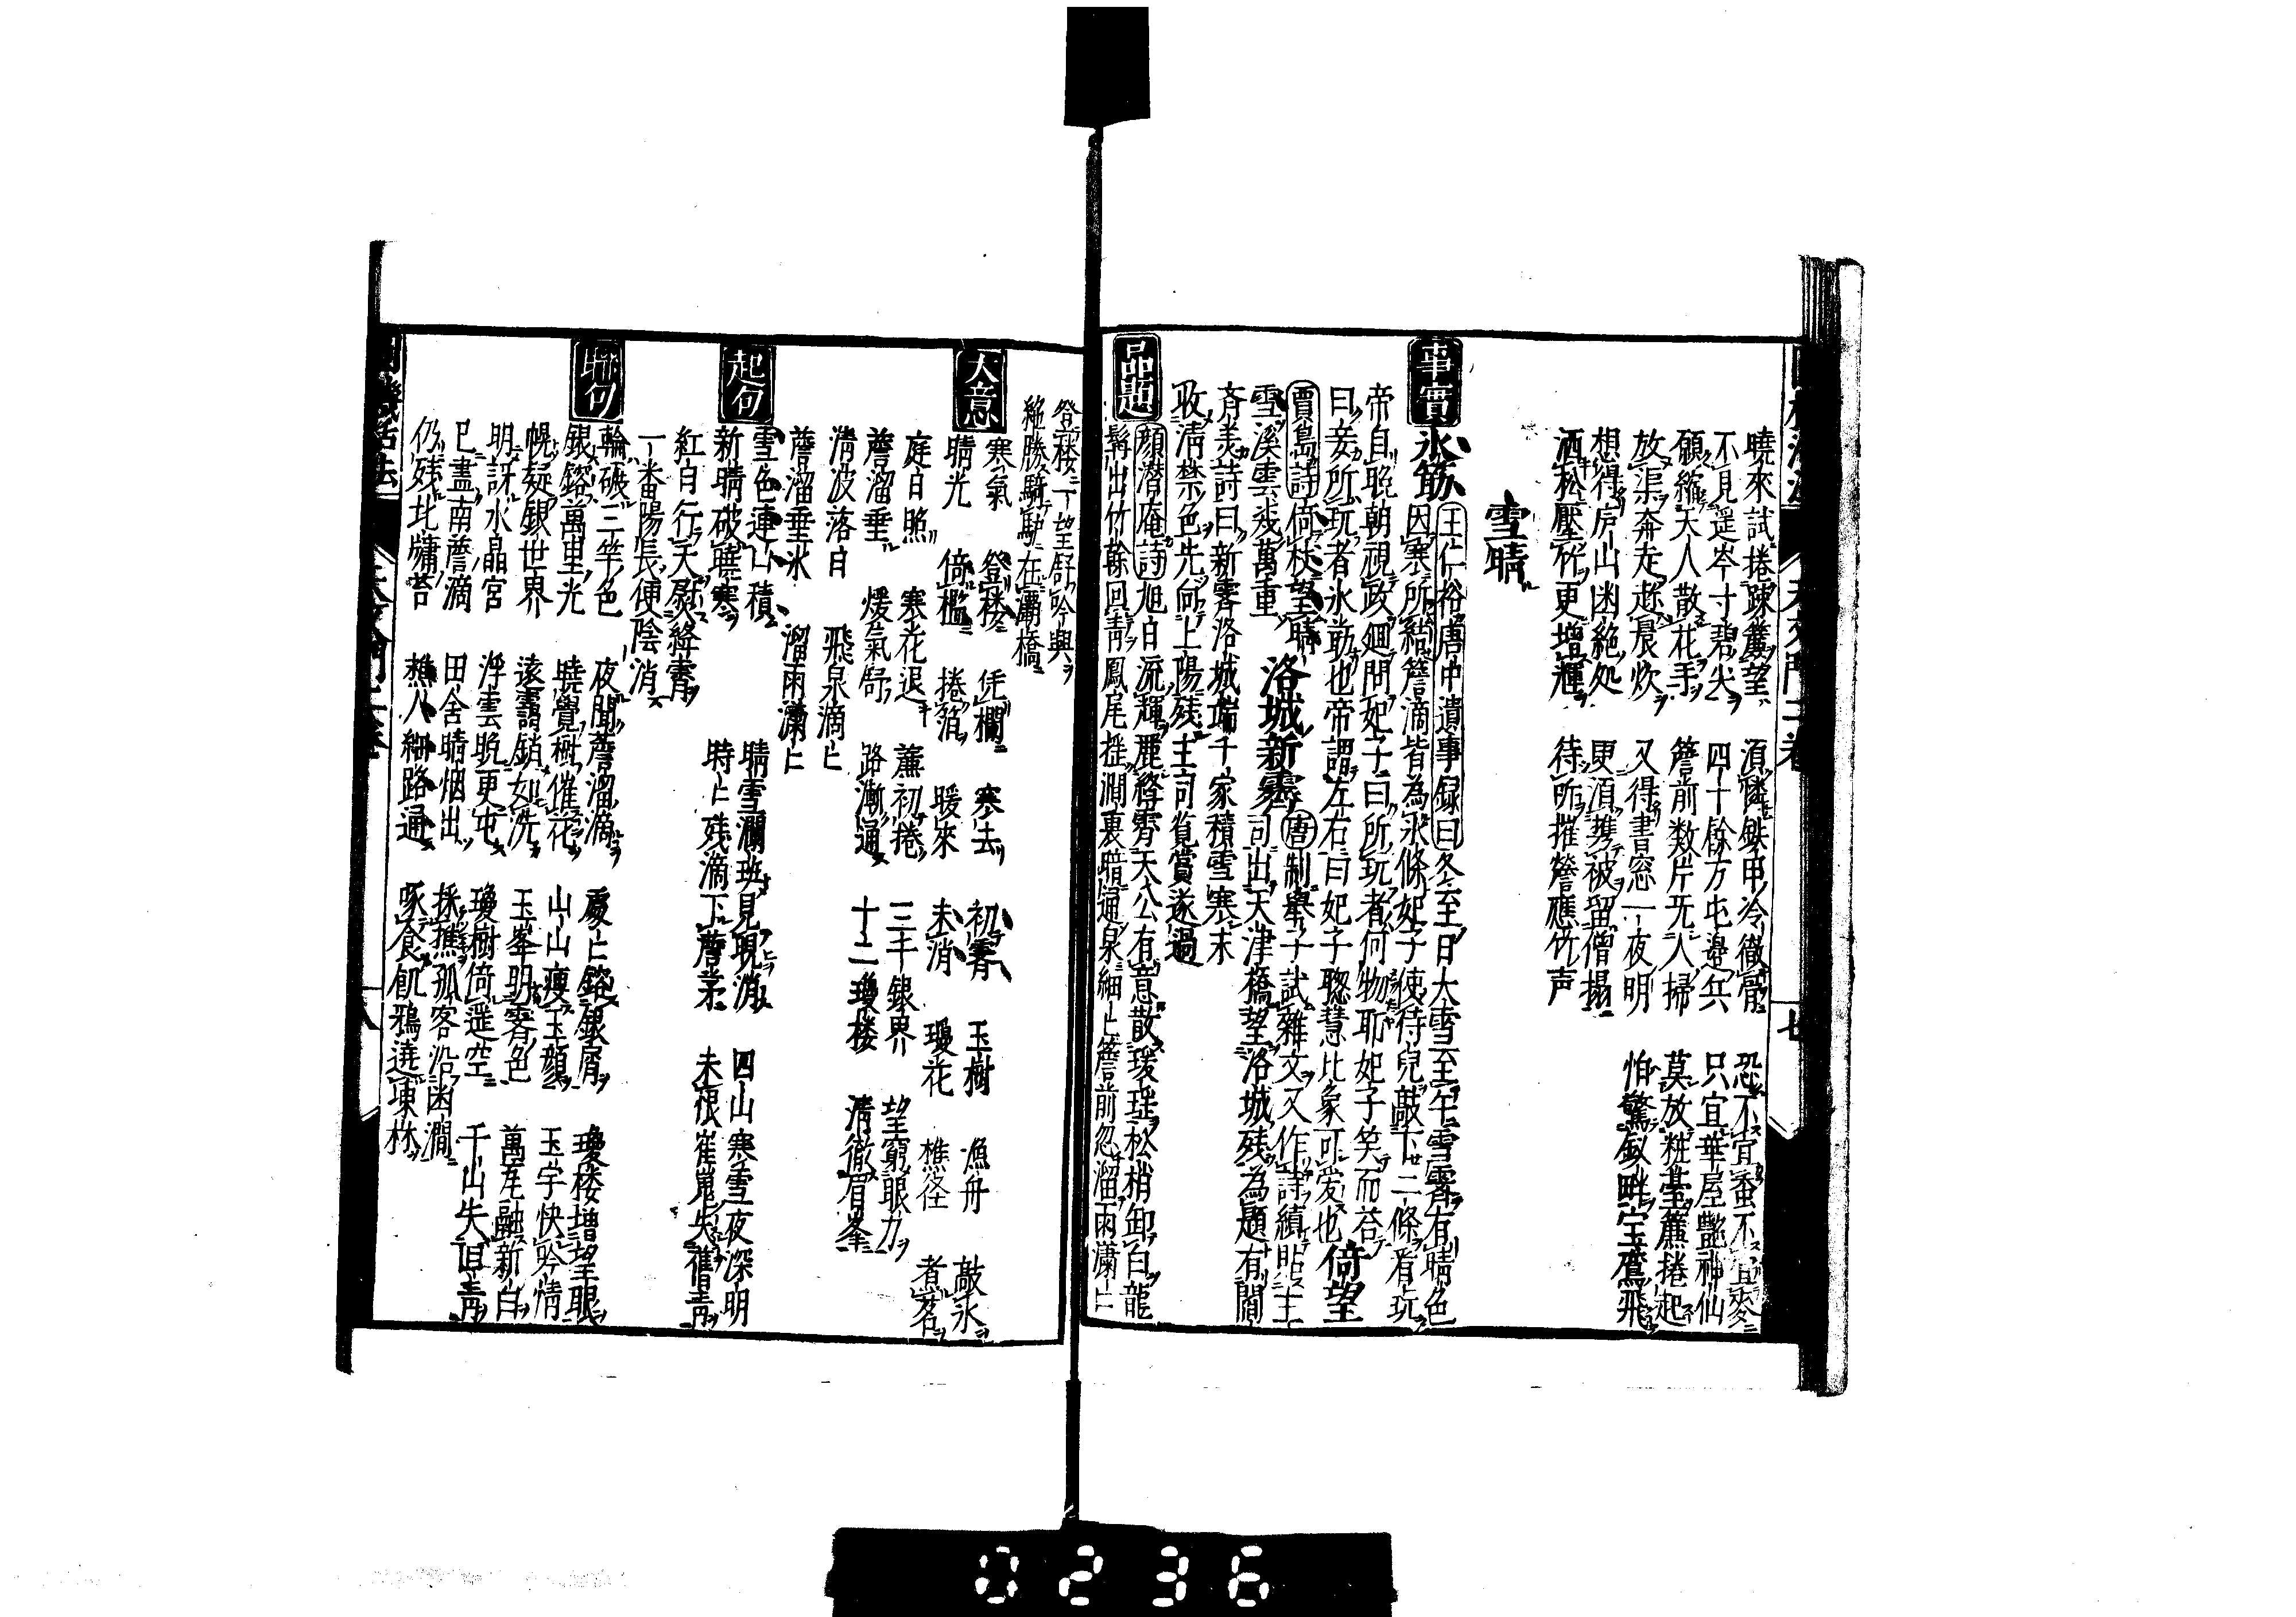 曉來試捲踈簾望　須憐鉄甲冷徹骨　恐不宜蚕不宜麥
不見遥岑寸碧尖　四十餘万屯邉兵　只宜華屋艶神仙
願縮天人散花手　簷前数片无人掃　莫放粧臺簾捲起
放渠奔走趂晨炊　又得書窓一夜明　怕驚釵畔宝鸞飛
想得庐山幽絶処　更須携被留僧榻
洒松壓竹更増輝　待所摧簷應竹声
雪晴
事實　氷筋　王仁裕唐中遺事録曰冬至日大雪至午雪霽有晴色
因寒所結簷滴皆為氷條妃子使侍兒敲下二條看玩
帝自晩朝視政廻問妃子曰所玩者何物耶妃子笑而荅
曰妾所玩者氷筯也帝謂左右曰妃子聡慧比象可爱也　倚望
賈島詩倚杖望晴雪溪雲幾萬重　洛城新霽　唐制舉子試雜文又作詩續貼主
司出天津橋望洛城残為題有閻
斉美詩曰新霽洛城端千家積雪寒未
收清禁色先向上陽残主司覧賞遂過
品題　顔潜庵詩旭日流輝麗絳霄天公有意散瓊瑶松梢卸白龍
髯出竹幹回青鳳尾揺澗裏暗通泉細〻簷前忽溜雨瀟〻
登楼一望舒吟興
絶勝騎馿在灞橋
大意　寒氣　登楼　凭欄　寒去　初霽　玉樹　漁舟　敲氷
晴光　倚檻　捲箔　暖來　未消　瓊花　樵径　煮茗
庭日照　寒花退　簾初捲　三千銀界　望窮眼力
簷溜垂　煖氣舒　路漸通　十二瓊楼　清徹眉峯
清波落日　飛泉滴〻
簷溜垂氷　溜雨瀟〻
起句　雪色連山積　晴雪瀾班見晛消　四山寒雪夜深明
新晴破曛寒　時〻残滴下簷茅　未恨崔嵬失舊青
紅日行天燦絳霄
一番陽長便陰消
聯句　輪碾三竿色　夜聞簷溜滴　處〻鎔銀屑　瓊楼増望眼
銀鎔萬里光　曉覺樹催花　山山痩玉顔　玉宇快吟情
幌疑銀世界　遠靄銷如洗　玉峯明霽色　萬瓦融新白
明訝水晶宮　浮雲晩更屯　瓊樹倚遥空　千山失旧青
已盡南簷滴　田舎晴烟出　採樵孤客沿幽澗
仍残北牗苔　樵人細路通　啄食飢鴉遶凍林
0236